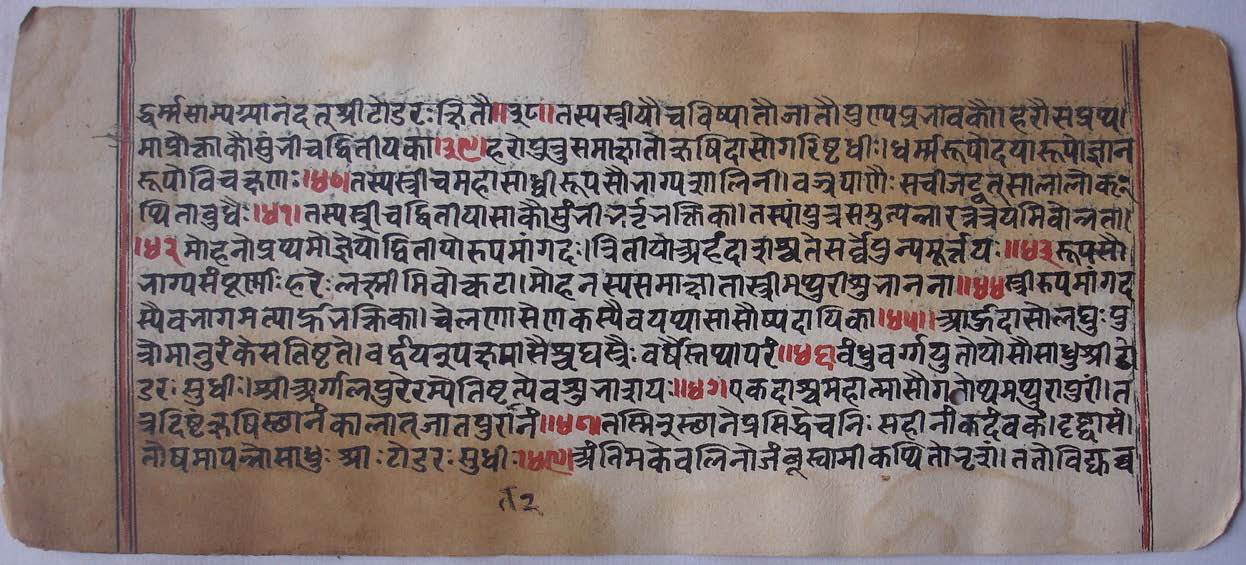 द्धर्म्मसाम्पग्पानंदतृश्रीटोडरःह्नितौ॥३८॥तस्यस्त्रीयौचविष्यातौजातौपुण्यप्रभावकौ।हरौसप्रथ्य।
माप्रोक्ताकौसुंभीचद्वितीयका।३९।हरोपुत्रुसमाख्यातोऋषिदासोगरिष्टधीः।धर्म्मरूपोदयारूपोज्ञान
रूपोविचक्षणः॥४०॥तस्यस्त्रीचमहासाध्वीरूपसौभाग्यशालिनी।वज्रपाणैःसचीजद्वत्सालालौक
थ्यिताबुधैः।४१।तस्यस्त्रीचद्वितीयासाकौसुंभीभर्तृभक्तिका।तस्यांपुत्रसमुत्पन्नारत्नत्रयमिवोन्नता।
।४२मोहनोप्रथ्यमोज्ञेयोद्वितीयोरुपमांगदः।त्रितीयोअर्हंदाशश्चतेसर्व्वेपुन्यमूर्त्तयः॥४३रूपसौ
भाग्यसंपूर्णाःहरेःलक्ष्मीमिवोत्कटा।मोहनस्यसमाख्यातास्त्रीमथुरीशुभानना॥४४स्त्रीरुपमांगद
स्यैवभागमत्याऽर्हभक्तिका।चेलणासेणकस्यैवयथ्यासासौष्यदायिका॥४५।आर्ऊदासोलघुःपु
त्रोमातुरंकेसतिष्टते।वर्द्धयनुपक्ष्मासैश्चघस्त्रैःवर्षैस्तथ्यापरं॥४६बंधुवर्ग्गयुतोयोसौसाधुश्रीटो
डरःसुधीः।श्रीअर्गलपुरेरम्येतिष्टत्येवशुभाशयः॥४७एकदाश्चमहात्मासौगतोथ्यमथुरापुरीं।त
त्रदिष्टंऋषिस्थानंकालात्जातपुर्रानं॥४८॥तस्मिनुस्थानेप्रसिद्धेचनिःसहीनांकदंबकं।दृष्ट्वासं।
तोषमापन्नोसाधुःश्रीःटोडरःसुधीः।४९।अंतिमकेवलिनोजंबूस्वामीकथ्यितोभृशं।ततोविद्युच्च